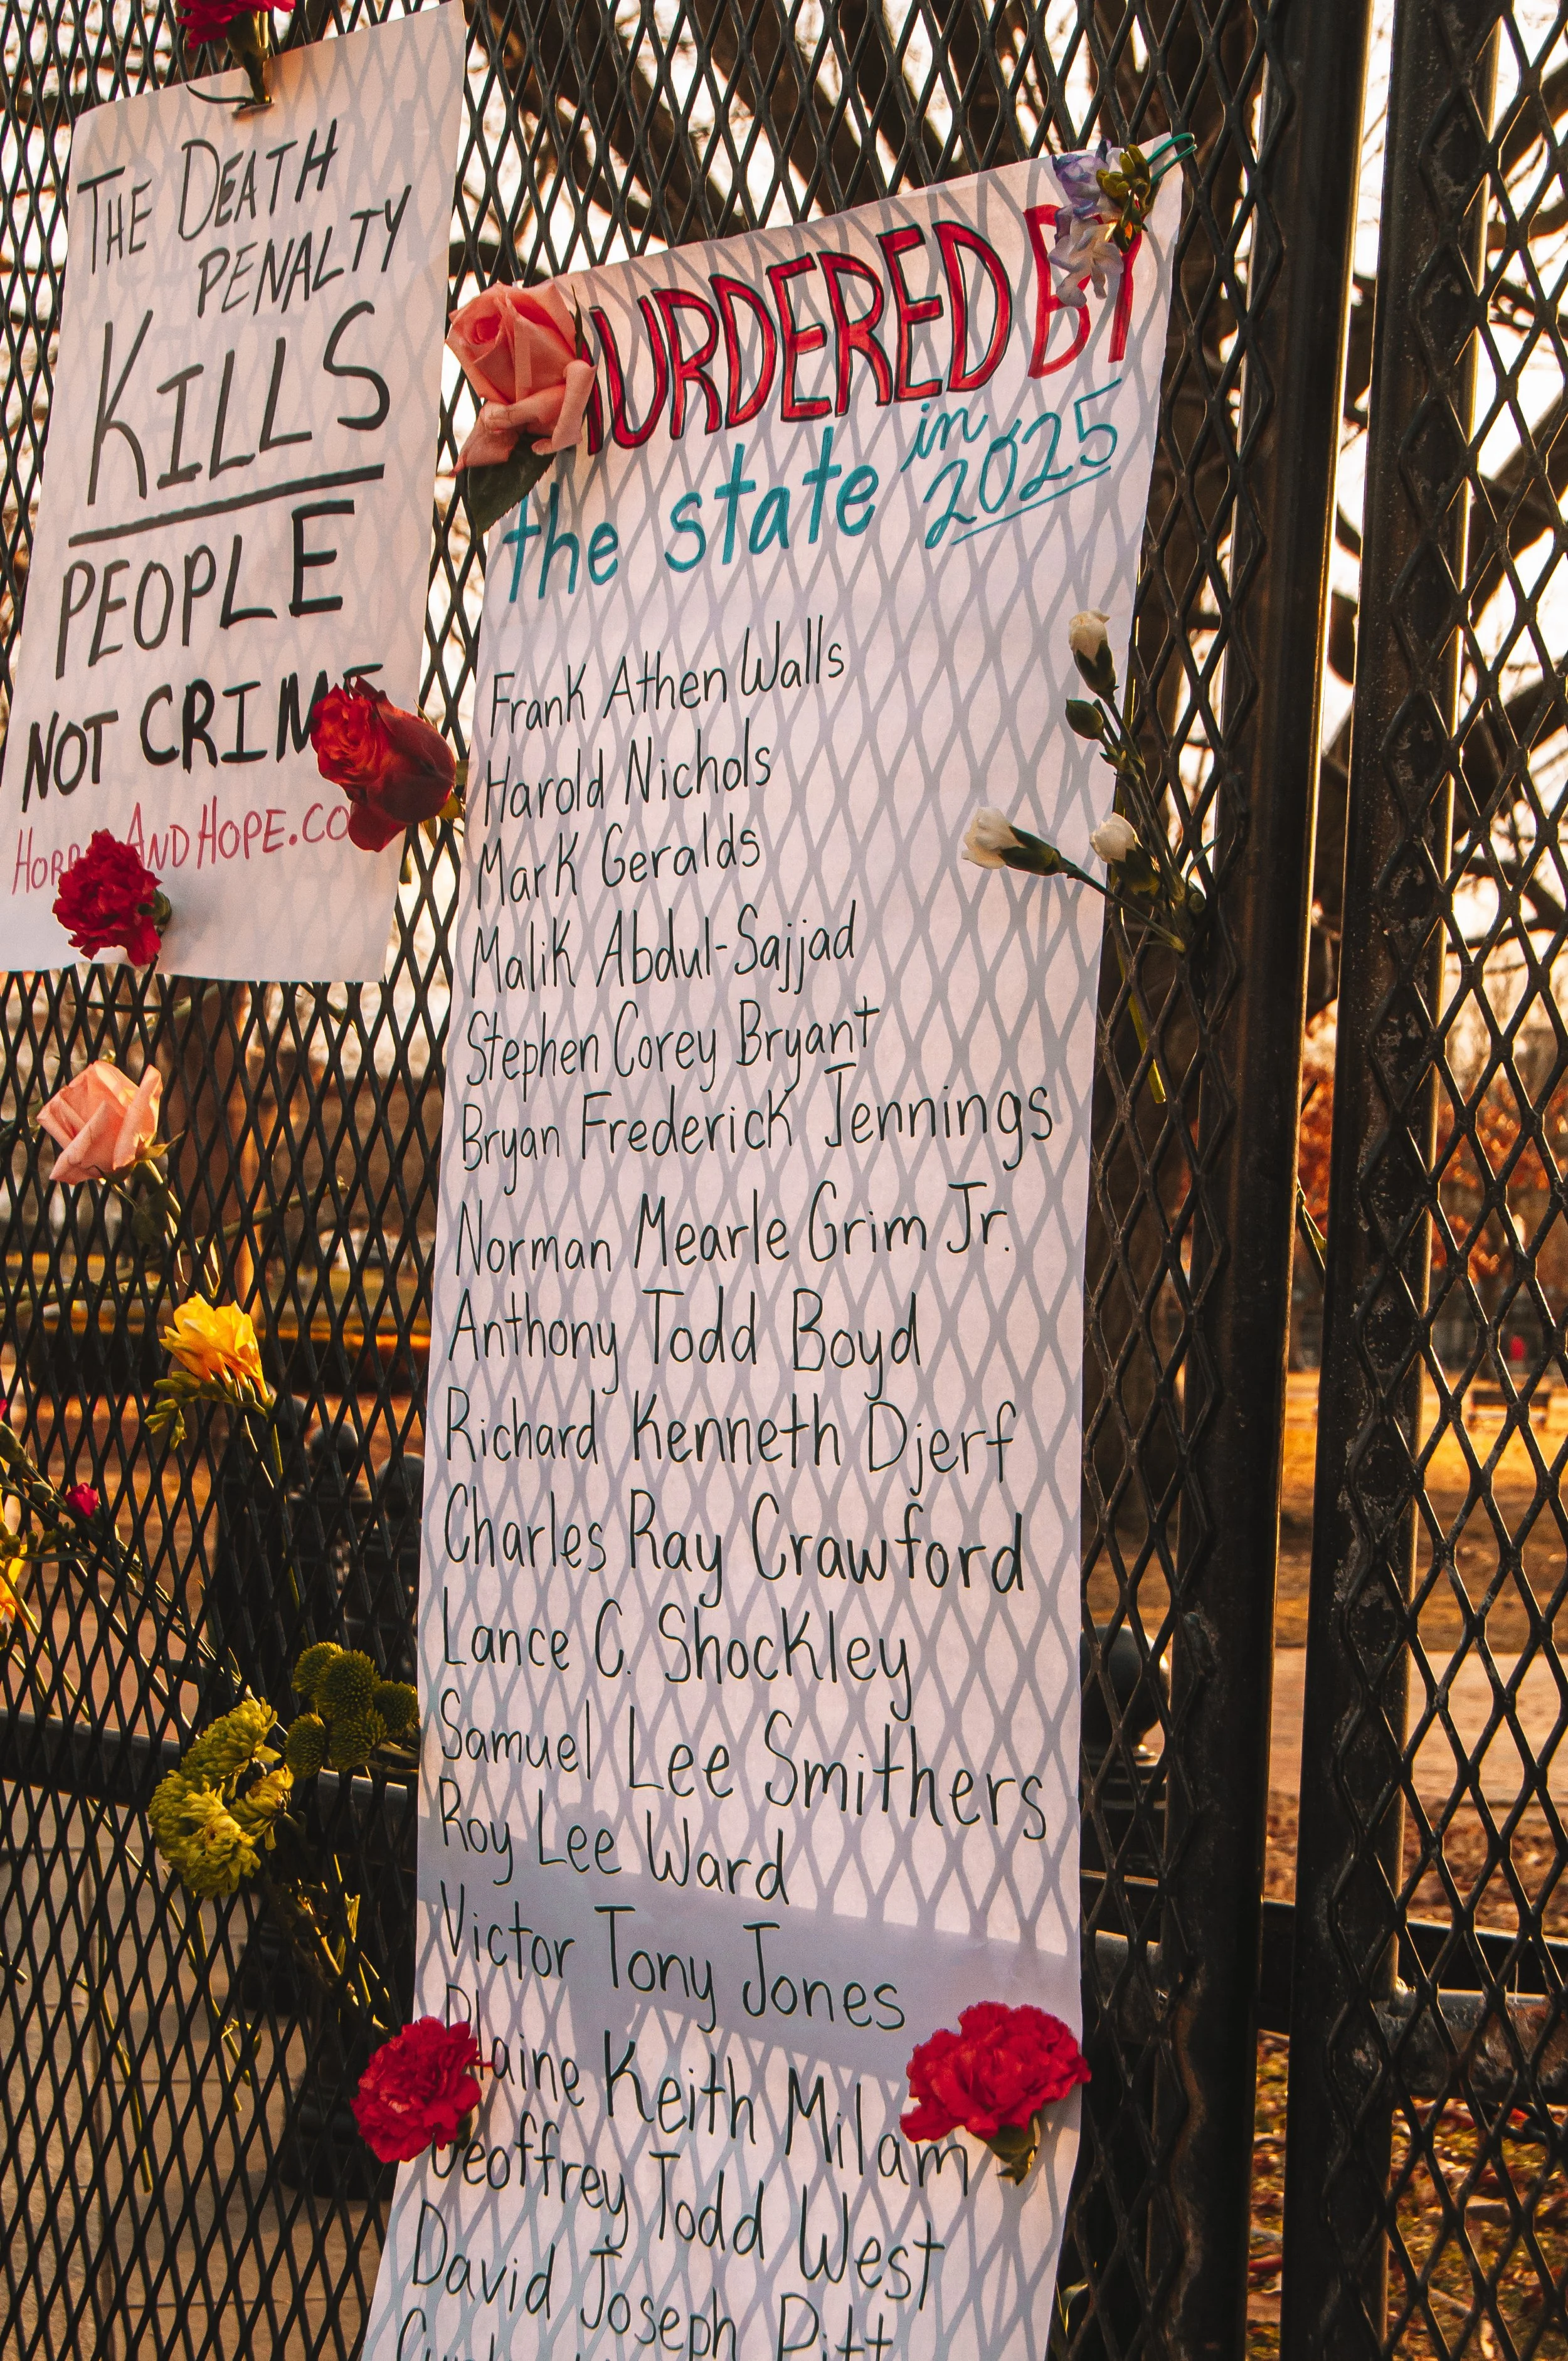 THE DEATH
PENALTY
KILLS
PEOPLE
NOT CRIME
HORR AND HOPE.CO
MURDERED BY
the state in
2025
Frank Athen Walls
Harold Nichols
Mark Geralds
Malik Abdul-Sajjad
Stephen Corey Bryant
Bryan Frederick Jennings
Norman Mearle Grim Jr.
Anthony Todd Boyd
Richard Kenneth Djerf
Charles Ray Crawford
Lance C. Shockley
Samuel Lee Smithers
Roy Lee Ward
Victor Tony Jones
Blaine Keith Milam
Geoffrey Todd West
David Joseph Pitt